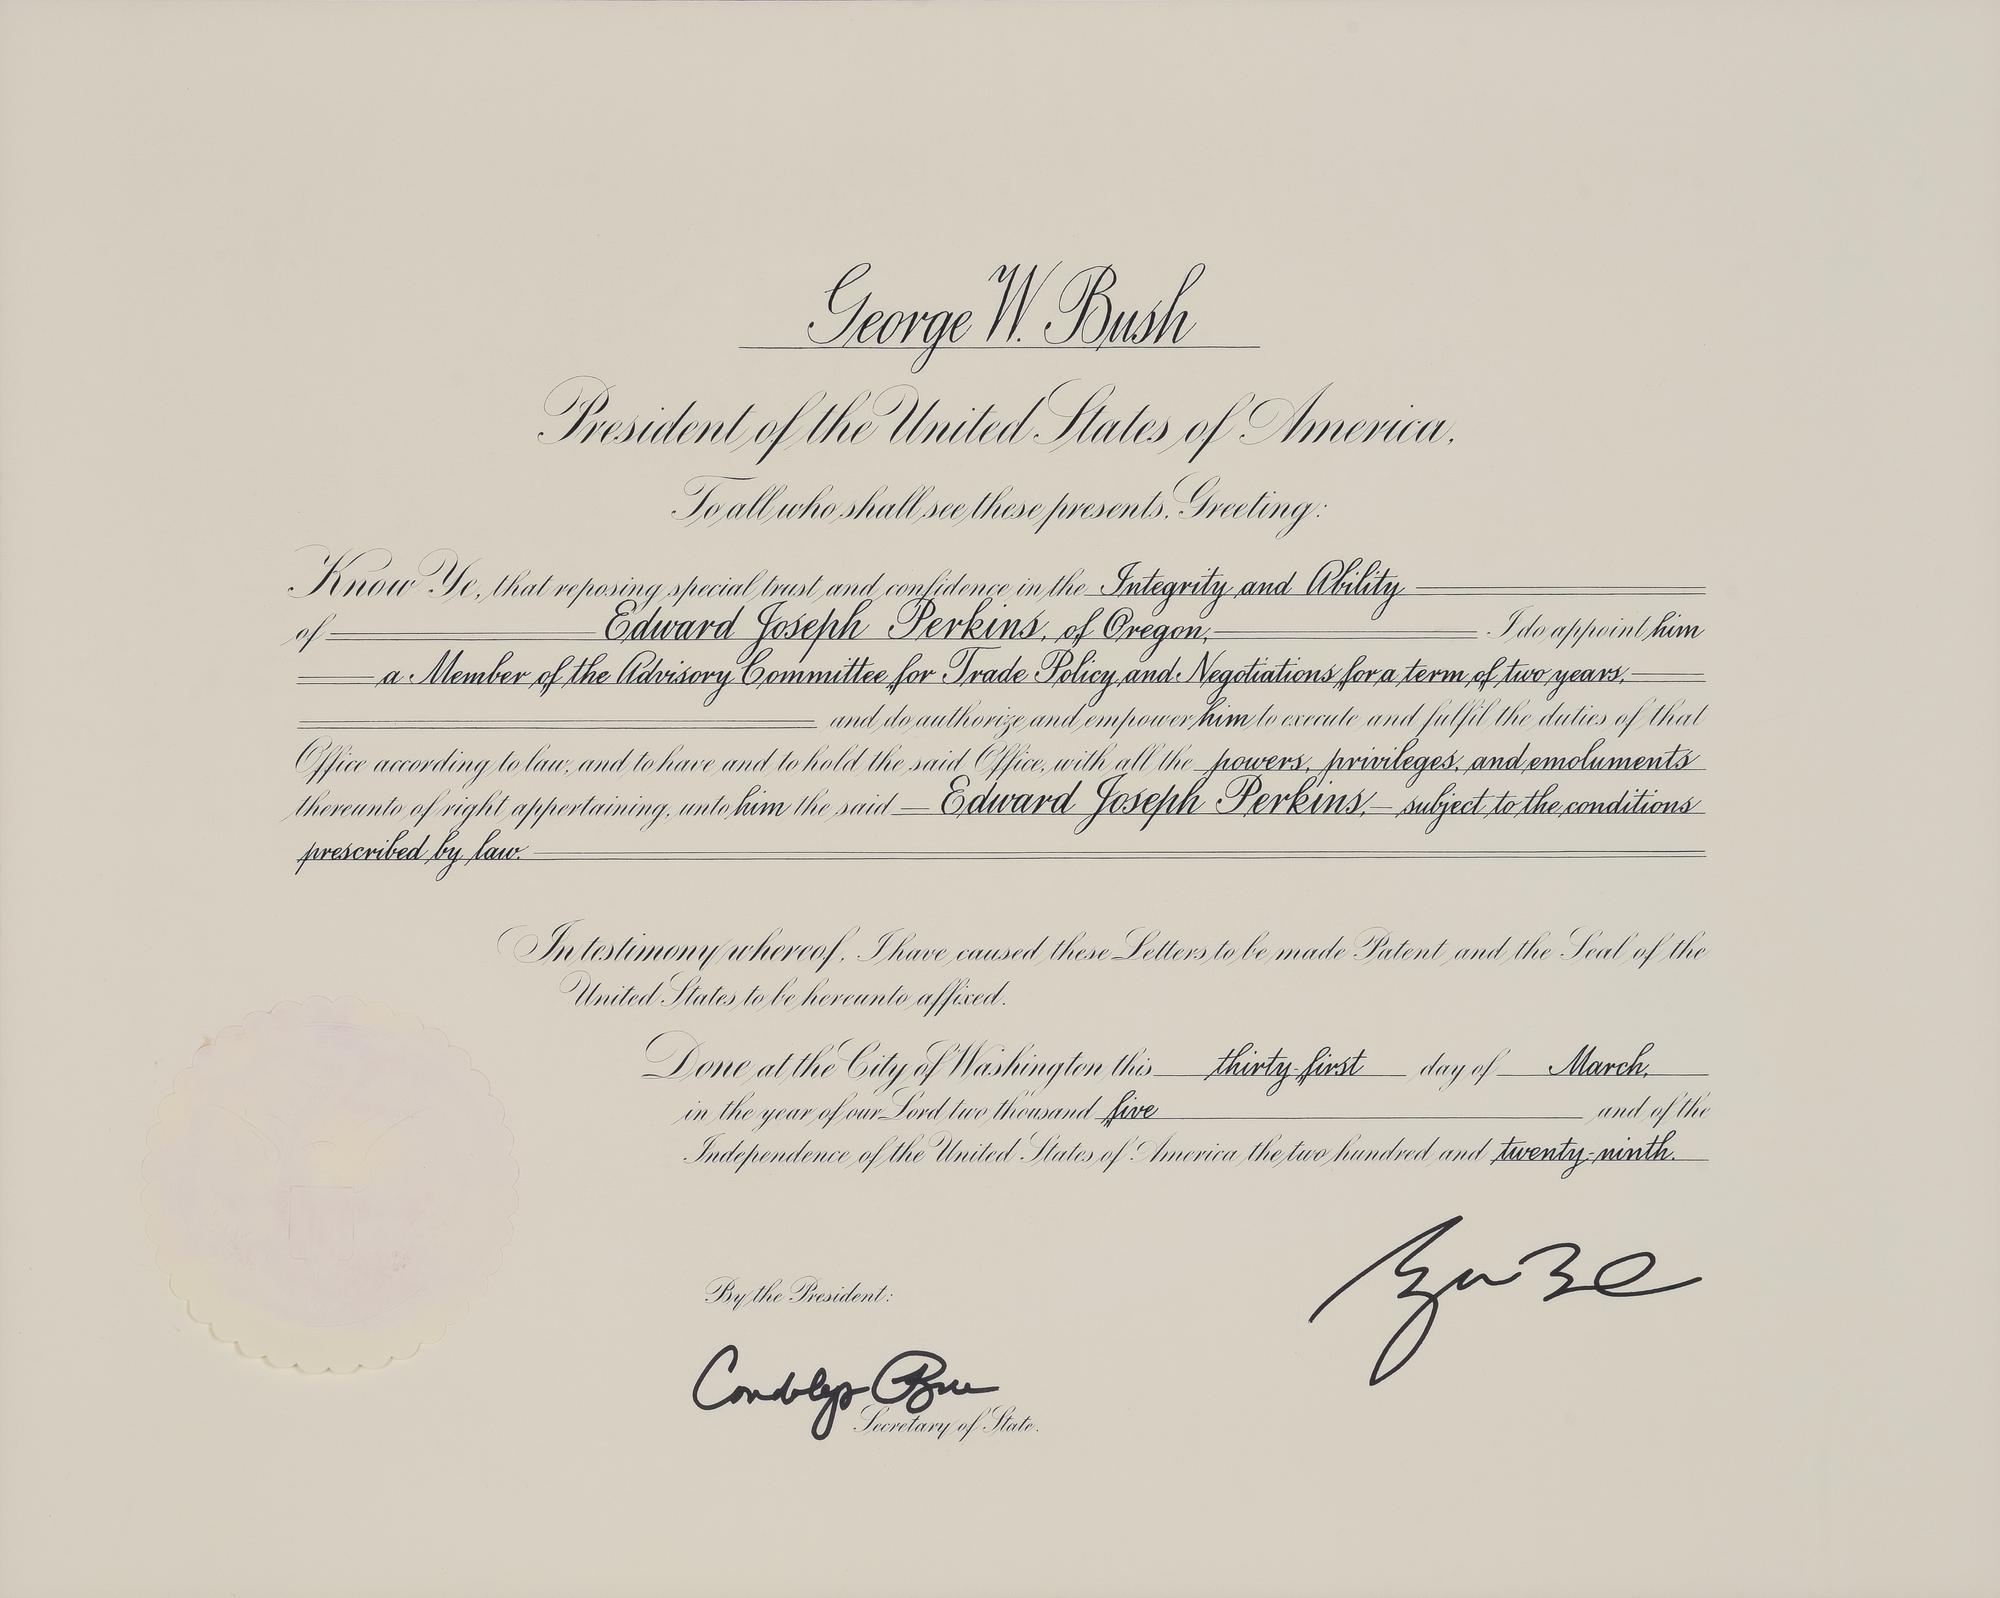 George W. Bush
President of the United States of America,
To all who shall see these presents, Greeting:
Know Ye, that reposing special trust and confidence in the Integrity and Ability
of Edward Joseph Perkins, of Oregon, I do appoint him
a Member of the Advisory Committee for Trade Policy and Negotiations for a term of two years,
and do authorize and empower him to execute and fulfil the duties of that
Office according to law, and to have and to hold the said Office, with all the powers, privileges, and emoluments
thereunto of right appertaining, unto him the said Edward Joseph Perkins, subject to the conditions
prescribed by law.
In testimony whereof, I have caused these Letters to be made Patent and the Seal of the
United States to be hereunto affixed.
Done at the City of Washington this thirty-first day of March,
in the year of our Lord two thousand five and of the
Independence of the United States of America the two hundred and twenty-ninth.
By the President:
Condoleezza Rice
Secretary of State.